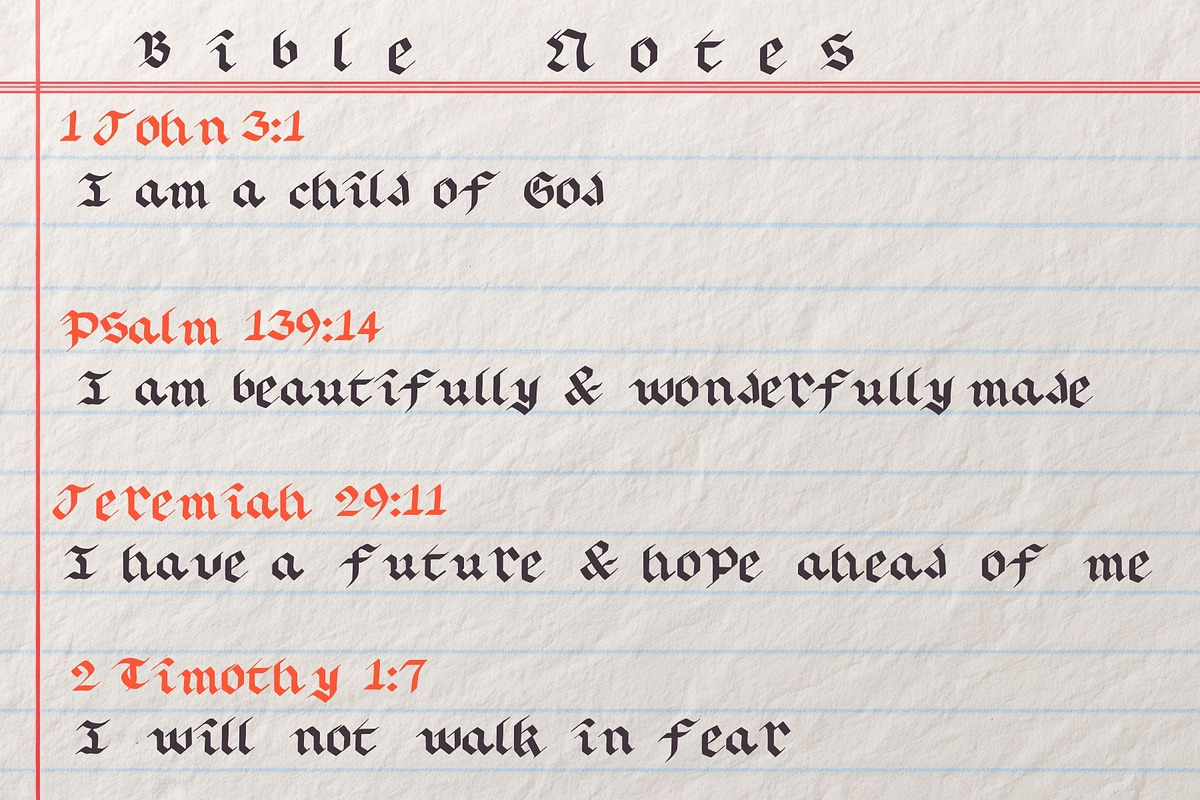 Bible Notes
1 John 3:1
I am a child of God
Psalm 139:14
I am beautifully & wonderfully made
Jeremiah 29:11
I have a future & hope ahead of me
2 Timothy 1:7
I will not walk in fear